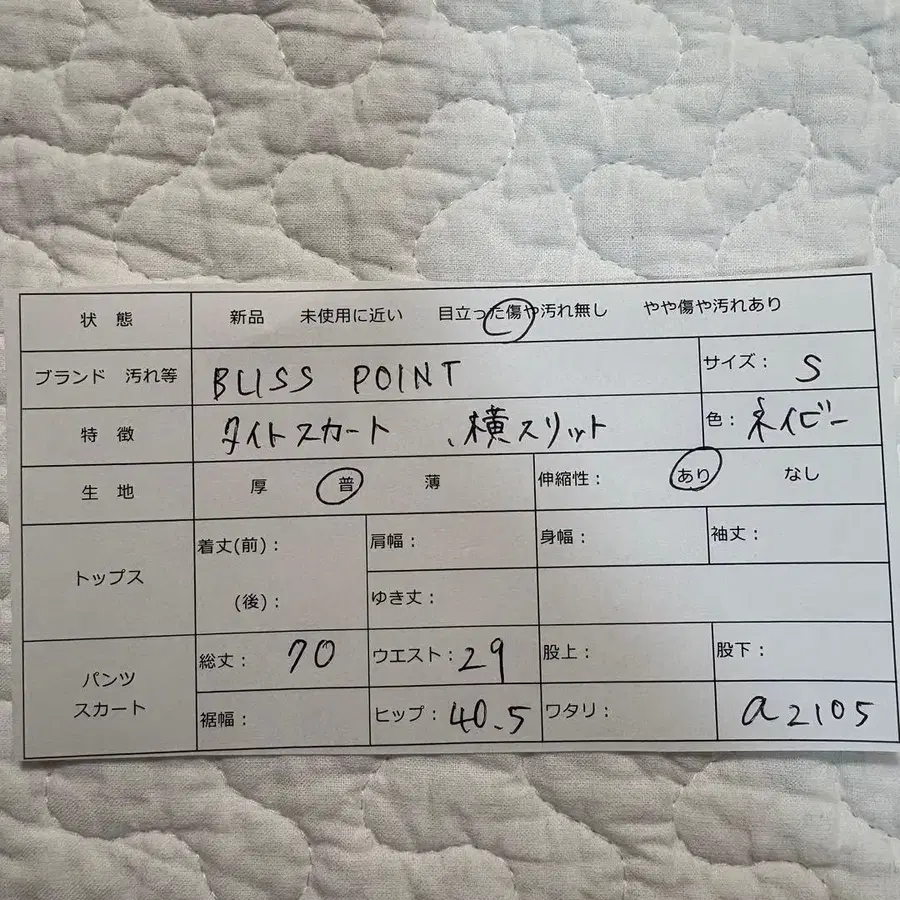 状 態 新品 未使用に近い 目立った傷や汚れ無し やや傷や汚れあり
ブランド 汚れ等 BLISS POINT サイズ: S
特 徴 タイトスカート 、横スリット 色: ネイビー
生 地 厚 普 薄 伸縮性: あり なし
トップス 着丈(前): 肩幅: 身幅: 袖丈:
(後): ゆき丈:
パンツ スカート 総丈: 70 ウエスト: 29 股上: 股下:
裾幅: ヒップ: 40.5 ワタリ: a2105